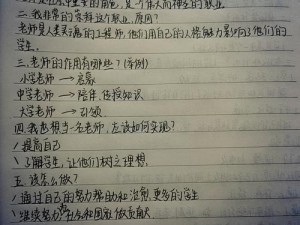 中重要的角色,是一个伟大而神圣的职业
二.我非常的崇拜这个职业,原因?
老师是人类灵魂的工程师,他们用自己的人格魅力影响了他们的
学生。
三.老师的作用有哪些?(举例)
小学老师 → 启蒙
中学老师 → 陪伴,传授知识
大学老师 → 引领
四.我也想当一名老师,应该如何实现?
1提高自己
1了解学生,让他们树立理想
五.该怎么做?
1通过自己的努力帮助和 更多的学生
1继续努力为社会和国家做贡献